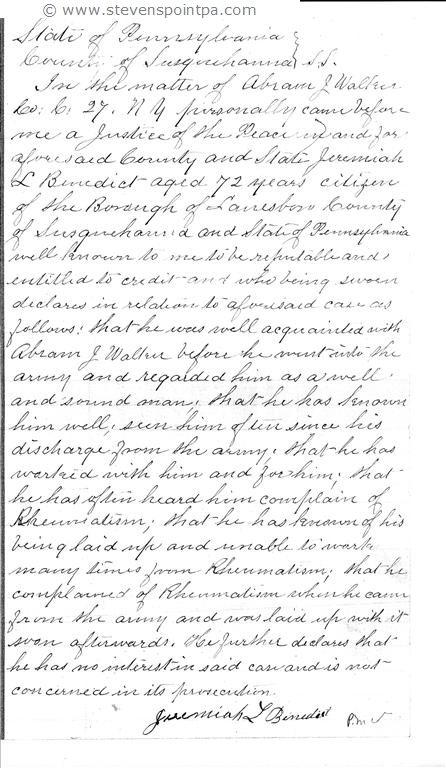 © www.stevenspointpa.com
State of Pennsylvania }
County of Susquehanna } S.S.
In the matter of Abram J. Walker
Co. C. 27. N Y personally came before
me a Justice of the Peace in and for
aforesaid County and State Jeremiah
L Benedict aged 72 years citizen
of the Borough of Lanesboro County
of Susquehanna and State of Pennsylvania
well known to me to be reputable and
entitled to credit and who being sworn
declares in relation to aforesaid case as
follows: that he was well acquainted with
Abram J. Walker before he went into the
army and regarded him as a well
and sound man; that he has known
him well; seen him often since his
discharge from the army; that he has
worked with him and for him; that
he has often heard him complain of
Rheumatism; that he has known of his
being laid up and unable to work
many times from Rheumatism; that he
complained of Rheumatism when he came
from the army and was laid up with it
soon afterwards. He further declares that
he has no interest in said case and is not
concerned in its prosecution.
Jeremiah L Benedict